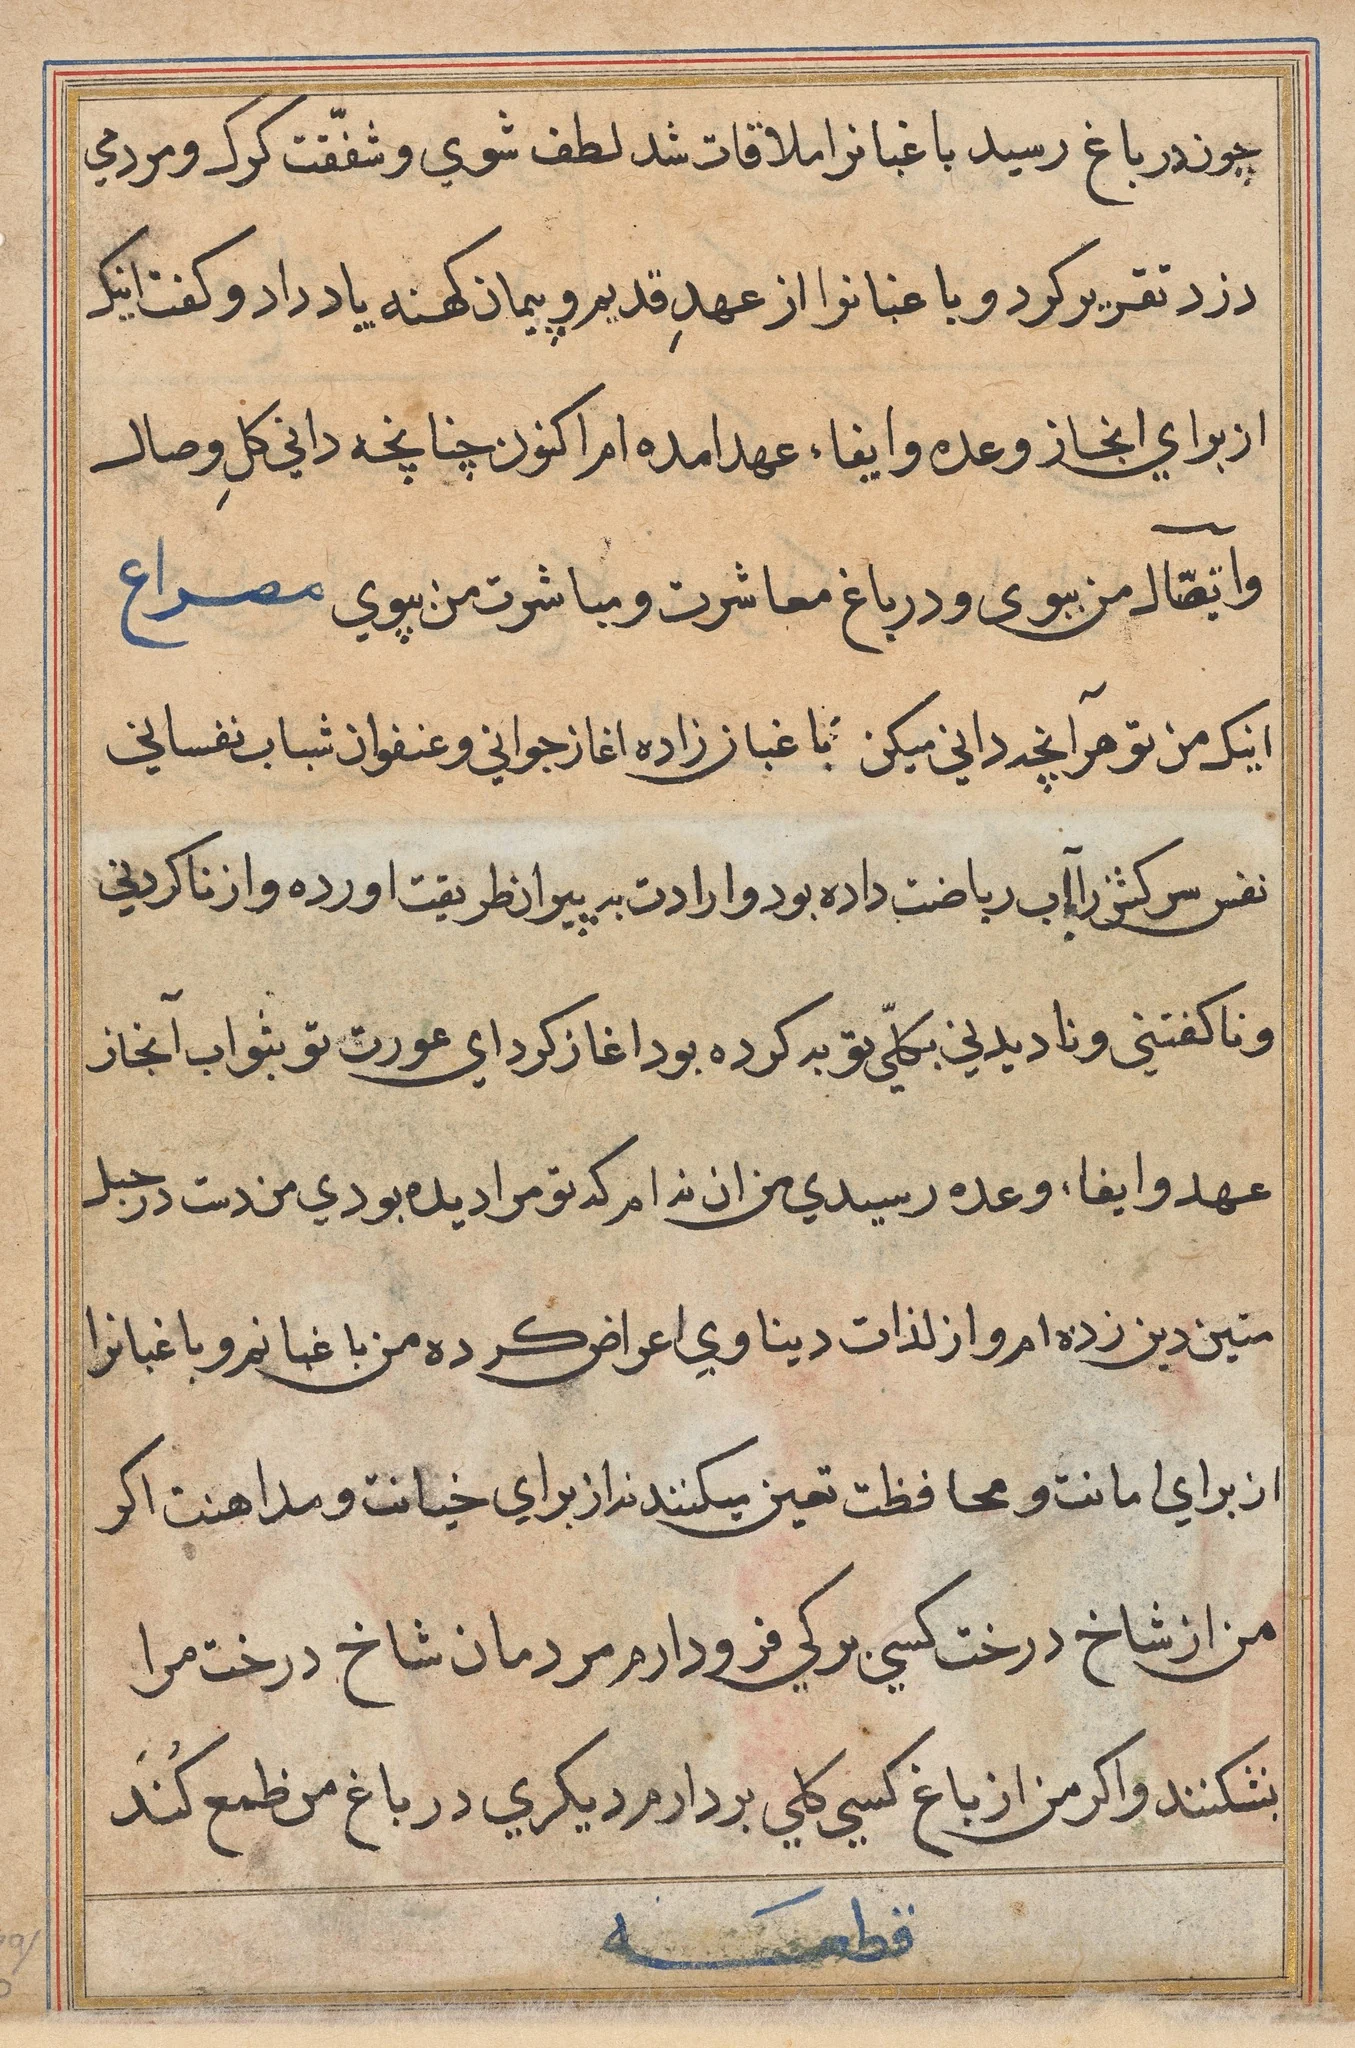 چون در باغ رسید باغبانرا ملاقات شد لطف شوي و شفّقت كرك و مردمي
درد تقریر کرد و باغبانرا از عهدِ قدیم و پیمان کهنه یاد داد و کفت اینک
از براي انجاز وعده و ایفاء عهد امده ام اکنون چنانچه داني کلِ وصال
و اتصّال من ببوی و در باغ معاشرت و مباشرت من بپوي مصراع
اینک من تو هر آنچه داني میکن باغبان زاده اغاز جواني و عنفوان شباب نفساني
نفس سرکش را بآب ریاضت داده بود و ارادت به پیران طریقت اورده و از ناکردني
و ناکفتني و نادیدني بکلّي توبه کرده بود اغاز کرد اي عورت تو بثواب آنجاز
عهد و ایفاء وعده رسیدي من ان نه ام که تو مرا دیده بودي من دست در حبل
متین دین زده ام و از لذات دیناوي اعراض کرده من باغبانم و باغبانرا
از براي امانت و محافظت تعین میکنند نه از براي خیانت و مداهنت اکر
من از شاخ درخت کسي برکي فرود ارم مردمان شاخ درخت مرا
بشکنند و اکر من از باغ کسي کلي بردارم دیکري در باغ من طمع کُنَد
قطعه